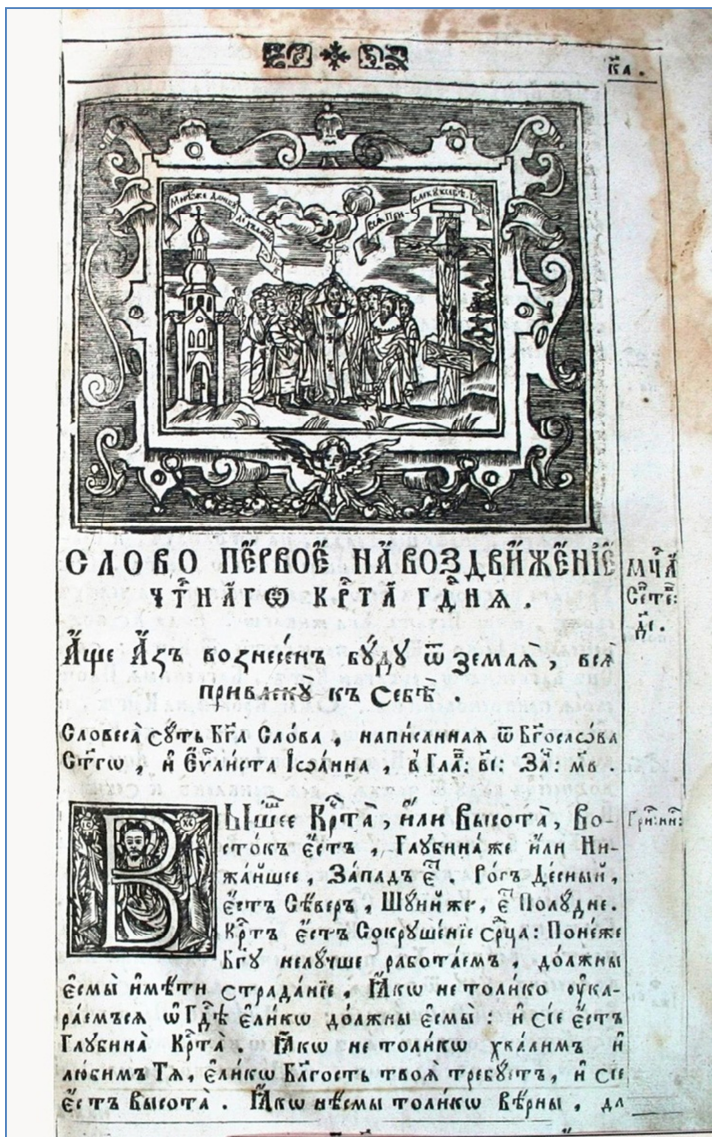 к҃а.
СЛОВО ПЕ́РВОЕ НА ВОЗДВИ́ЖЕНЇЕ
ЧТ҃НА́ГѠ КРТ҃А ГДⷭ҇НЯ.
А҆́ще А҆́зъ вознесе́нъ бꙋ́дꙋ ѿ землѧ̀, всѧ̀
привлекꙋ̀ къ Себѣ̀.
Словеса̀ сꙋ́ть Бг҃а Сло́ва, написаннаѧ ѿ Бг҃осло́ва
Ст҃гѡ, и҆ Є҆ѵⷢ҇листа І҆ѡа́нна, в̾ Гла҃: в҃і: За҃: м҃в.
ВЫ́шшее Крⷭ҇та̀, и҆лѝ Высота̀, Во-
сто́къ є҆́сть, Глꙋбина́же и҆лѝ Ни-
жа́йшее, За́падъ є҆́ⷭ҇. Ро́гъ Де́сный,
є҆́сть Сѣ́веръ, Шꙋ́йїже, є҆́ⷭ҇ Полꙋ́дне.
Крⷭ҇тъ є҆́сть Сокрꙋше́нїе Ср҃ца: Поне́же
Бг҃ꙋ нелꙋ́чше рабо́таемъ, до́лжны
є҆смы̀ и҆мѣ́ти страда́нїе, Ꙗ҆́кѡ не толи́ко ᲂу҆ка-
рѧ́емъсѧ ѡ҆ Гдⷭ҇ѣ є҆ли́кѡ до́лжны є҆смы̀: и҆ сїе є҆́сть
Глꙋбина̀ Крⷭ҇та̀. Ꙗ҆́кѡ не толи́кѡ хва́лимъ и҆
лю́бимъ Тѧ̀, є҆ли́кѡ Бл҃гость твоѧ̀ тре́бꙋетъ, и҆ сїе
є҆́сть Высота̀. Ꙗ҆́кѡ нѣ́смы толи́кѡ вѣ́рны, да